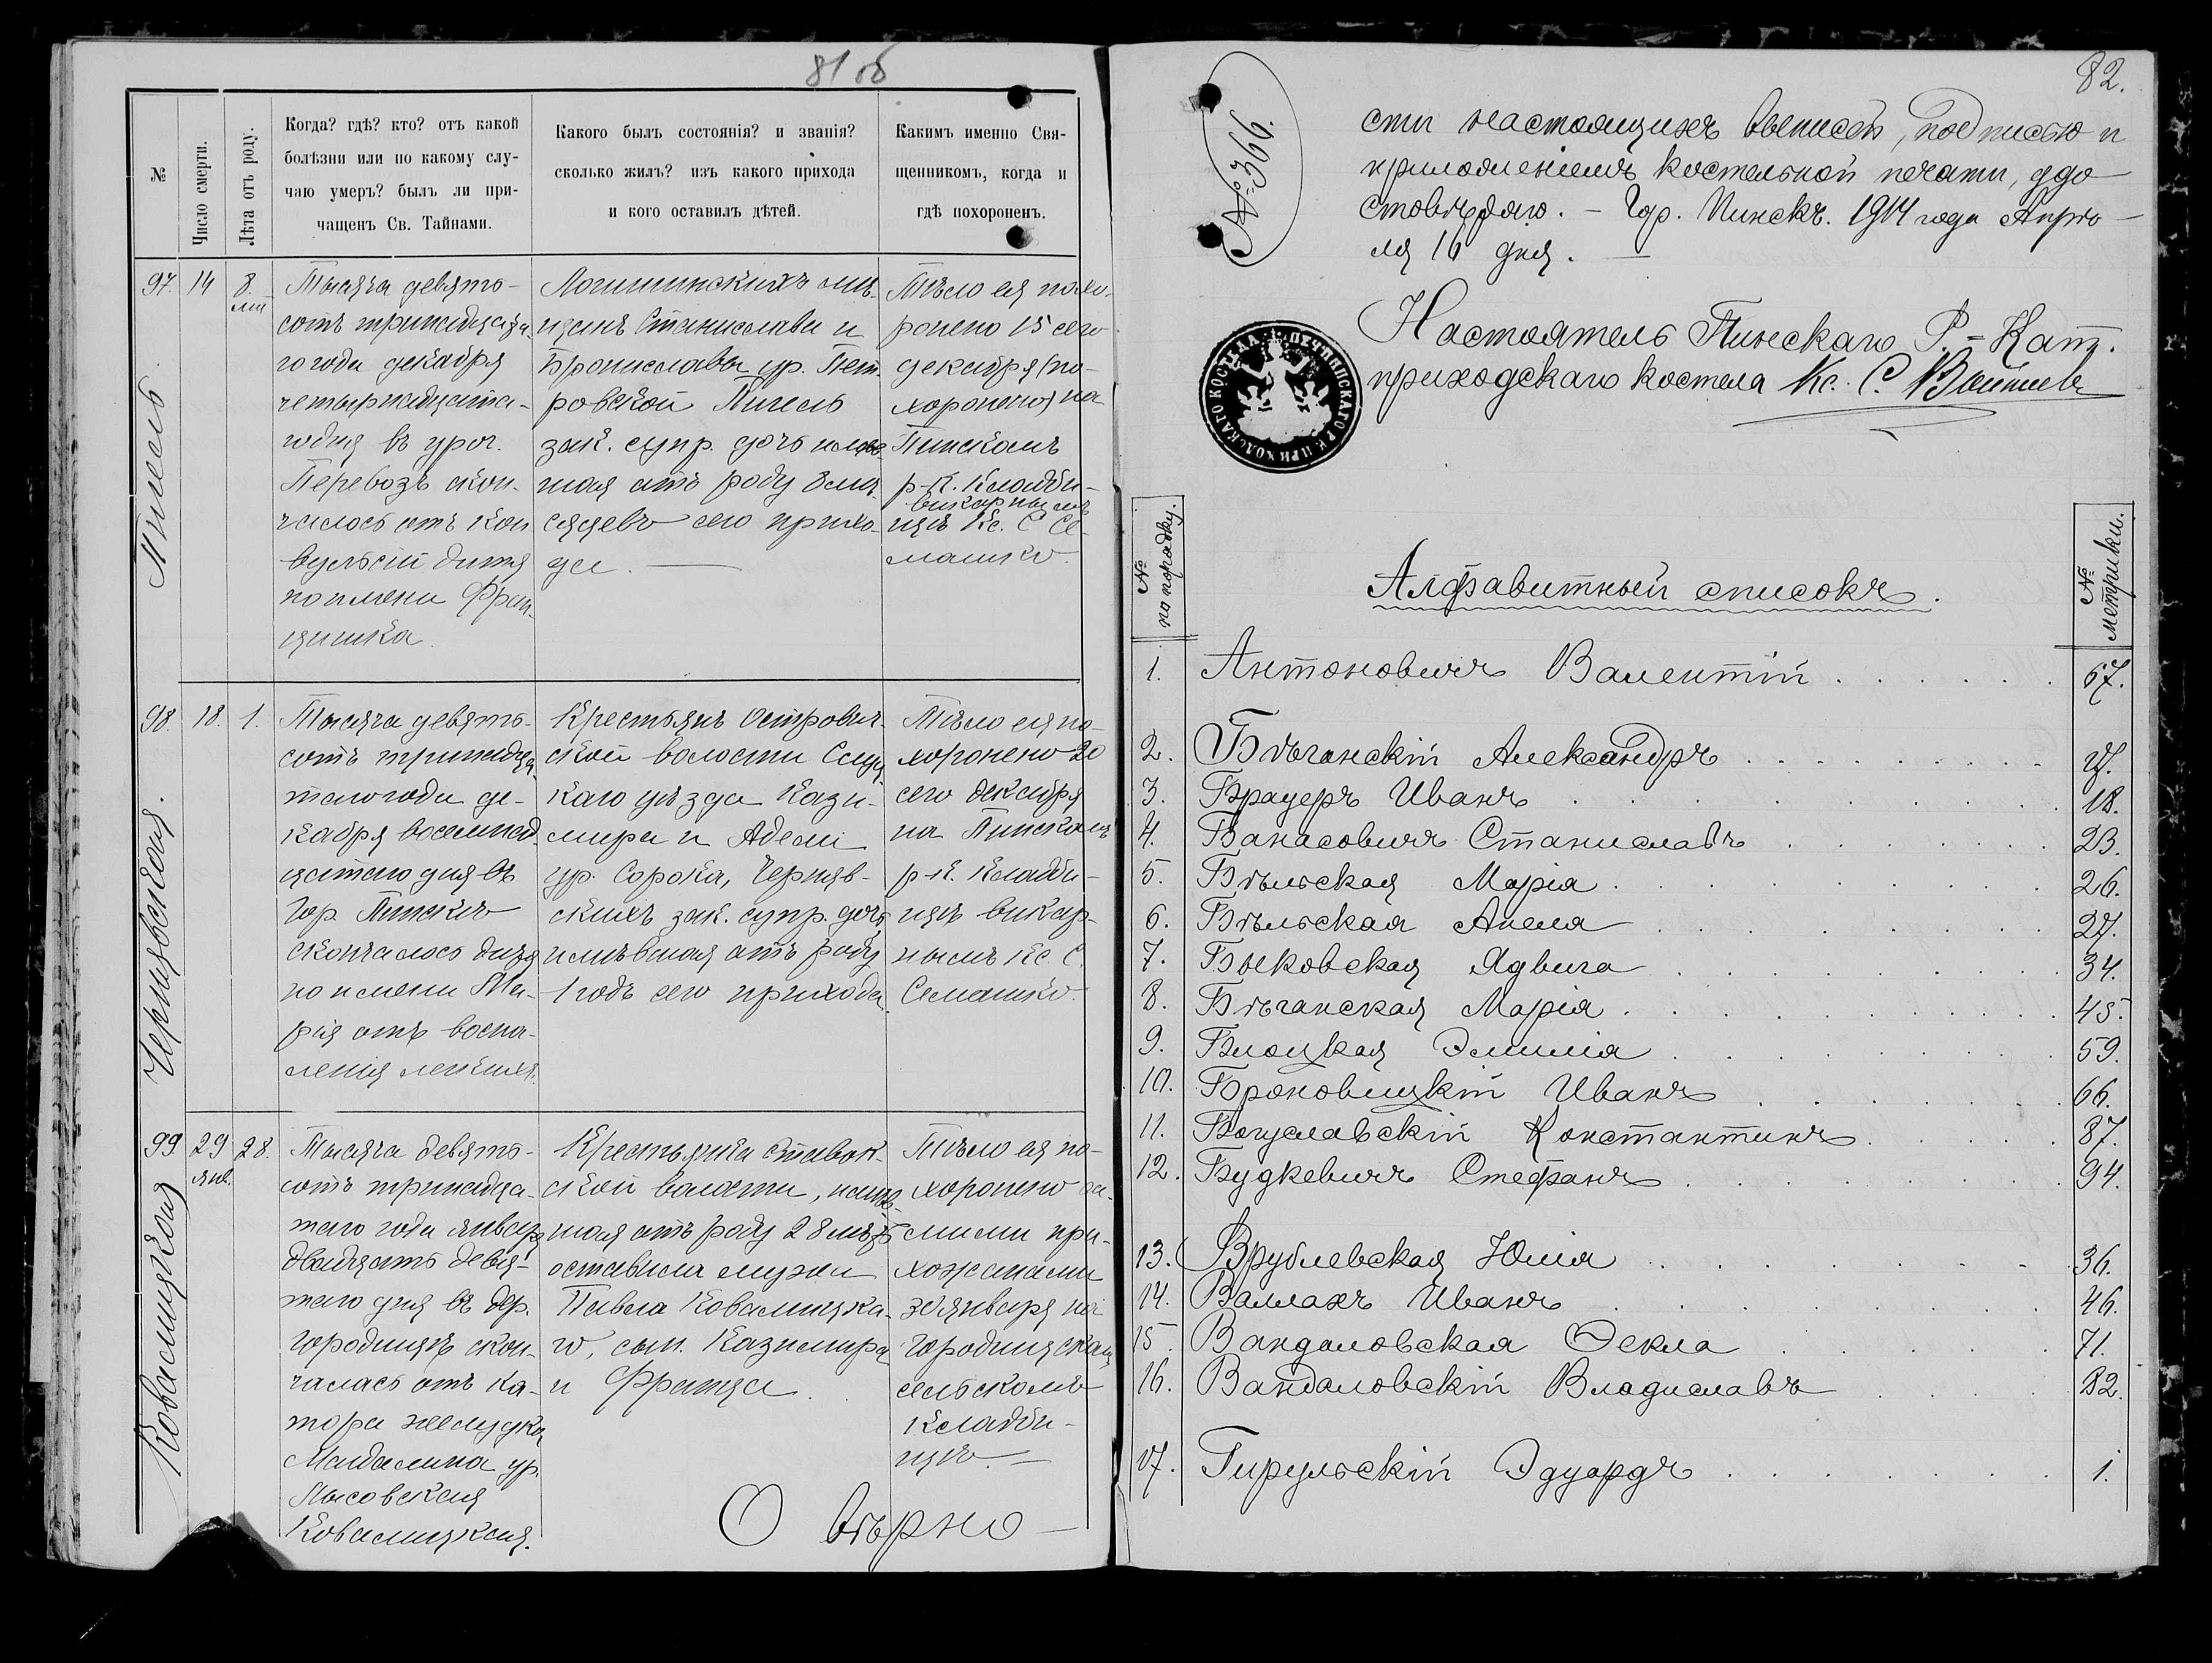 81 об
№
Число смерти.
Лѣта отъ роду.
Когда? гдѣ? кто? отъ какой
болѣзни или по какому слу-
чаю умеръ? былъ ли при-
чащенъ Св. Тайнами.
Какого былъ состоянія? и званія?
сколько жилъ? изъ какого прихода
и кого оставилъ дѣтей.
Какимъ именно Свя-
щенникомъ, когда и
гдѣ похороненъ.
97.
14
8.
Тысяча девять-
сотъ тринадцата-
го года декабря
четырнадцата-
го дня въ уроч.
Перевозъ скон-
чалось отъ кон
вульсій дитя
по имени Фран-
цишка.
Логишинскихъ мѣ-
щанъ Станислава и
Брониславы ур. Пет-
ровской
зак. супр. дочь имѣв
шая отъ роду 8 мѣ
сяцевъ сего прихо-
да. —
Тѣло ея похо-
ронено 15 сего
декабря (по-
хоронено) на
Пинскомъ
р-к. кладби-
викарнымъ
щѣ Кс. С Се-
машко.
Чернявская.
98.
18.
1.
Тысяча девять-
сотъ тринадца-
таго года де-
кабря восемнад-
цатаго дня въ
гор. Пинскѣ
скончалось дитя
по имени Ма-
рія отъ воспа-
ленія легкихъ.
Крестьянъ Островск-
ской волости Слуц-
каго уѣзда Кази-
мира и Адели
ур. Сорока, Черняв-
скихъ зак. супр. дочь
имѣвшая отъ роду
1 годъ сего прихода.
Тѣло ея по-
хоронено 20
сего декабря
на Пинскомъ
р-к. кладби-
щѣ викар-
нымъ Кс. С.
Семашко.
Ковалицкая
99
29
янв.
28.
Тысяча девять-
сотъ тринадца-
таго года января
двадцать девя-
таго дня въ дер.
Городищѣ скон-
чалась отъ ка-
тора желудка
Магдалина ур.
Лысовская
Ковалицкая.
Крестьянка Ставок-
ской волости, имѣв
шая отъ роду 28 лѣтъ
оставила мужа
Павла Ковалицка-
го, сын. Казимира
и Франца.
Тѣло ея по-
хоронено са-
мими при-
хожанами
30 января на
Городищскомъ
сельскомъ
кладби-
щѣ. —
вѣрно —
82.
№ 366.
сти настоящихъ выписей, подписью и
приложеніемъ костельной печати, удо
стовѣряю. — Гор. Пинскъ. 1914 года Апрѣ-
ля 16 дня. —
Настоятель Пинскаго Р.-Кат.
приходскаго костела Кс. С.
№
по порядку.
Алфавитный списокъ.
№
метрики.
1. Антоновичъ Валентій . . . . . . 67.
2. Бѣганскій Александръ . . . . . . . . . 17.
3. Брауеръ Иванъ . . . . . . . . . . . 18.
4. Банасовичъ Станиславъ . . . . . . . 23.
5. Бѣльская Марія . . . . . . . . . . 26.
6. Бѣльская Анеля . . . . . . . . . 27.
7. Быковская Ядвига . . . . . . . . . 34.
8. Бѣганская Марія . . . . . . . . . . 45.
9. Блоцкая Эмилія . . . . . . . . . 59.
10. Броновицкій Иванъ . . . . . . . 66.
11. Богуславскій Константинъ . . . . . 87.
12. Будкевичъ Стефанъ . . . . . . . . 94.
13. Врублевская Юлія . . . . . . . . 36.
14. Валлахъ Иванъ . . . . . . . . . 46.
15. Вандаловская Ѳекла . . . . . . 71.
16. Вандаловскій Владиславъ . . . . 82.
17. Гирульскій Эдуардъ . . . . . . . . 1.